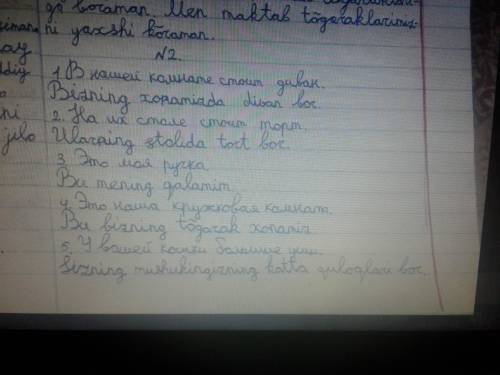 gа boraman. Men maktab tōgaraklarimiz-
ni yaxshi kōraman.
N2.
1. В нашей комнате стоит диван.
Bizning xonamizda divan bor.
2. На их столе стоит торт.
Ularning stolida tort bor.
3. Это моя ручка.
Bu mening qalamim.
4. Это наша кружковая комнат.
Bu bizning tōgarak xonamiz.
5. У вашей кошки большие уши.
Sizning mushukingizning katta quloqlari bor.